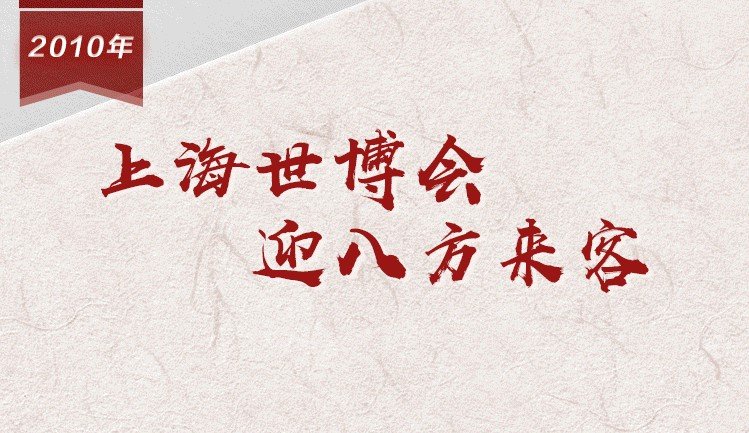 2010年
上海世博会
迎八方来客